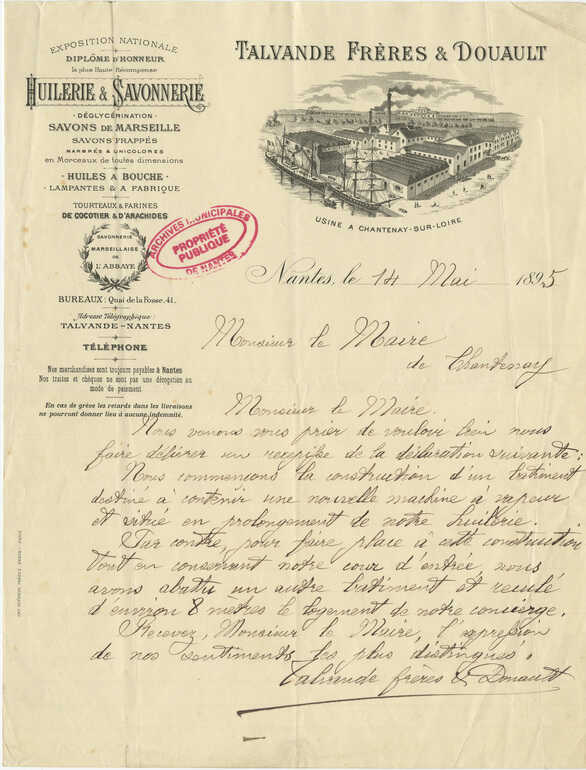 EXPOSITION NATIONALE
DIPLÔME D'HONNEUR
la plus Haute Récompense
HUILERIE & SAVONNERIE
DÉGLYCÉRINATION
SAVONS DE MARSEILLE
SAVONS FRAPPÉS
MARBRÉS & UNICOLORES
en Morceaux de toutes dimensions
HUILES A BOUCHE
LAMPANTES & A FABRIQUE
TOURTEAUX & FARINES
DE COCOTIER & D'ARACHIDES
SAVONNERIE
MARSEILLAISE
DE
L'ABBAYE
BUREAUX: Quai de la Fosse, 41.
Adresse Télégraphique:
TALVANDE-NANTES
TÉLÉPHONE
Nos marchandises sont toujours payables à Nantes
Nos traites et chèques ne sont pas une dérogation au
mode de paiement
En cas de grève les retards dans les livraisons
ne pourront donner lieu à aucune indemnité.
TALVANDE FRÈRES & DOUAULT
USINE A CHANTENAY-SUR-LOIRE
ARCHIVES MUNICIPALES
PROPRIÉTÉ
PUBLIQUE
DE NANTES
Nantes, le 14 Mai 1895
Monsieur le Maire
de Chantenay
Monsieur le Maire.
Nous venons vous prier de vouloir bien nous
faire délivrer un recepissé de la déclaration suivante:
Nous commençons la construction d'un bâtiment
destiné à contenir une nouvelle machine à vapeur
et situé en prolongement de notre huilerie.
Par contre, pour faire place à cette construction
tout en conservant notre cour d'entrée, nous
avons abattu un autre bâtiment et reculé
d'environ 8 mètres le logement de notre concierge.
Recevez, Monsieur le Maire, l'expression
de nos sentiments les plus distingués.
Talvande frères & Douault